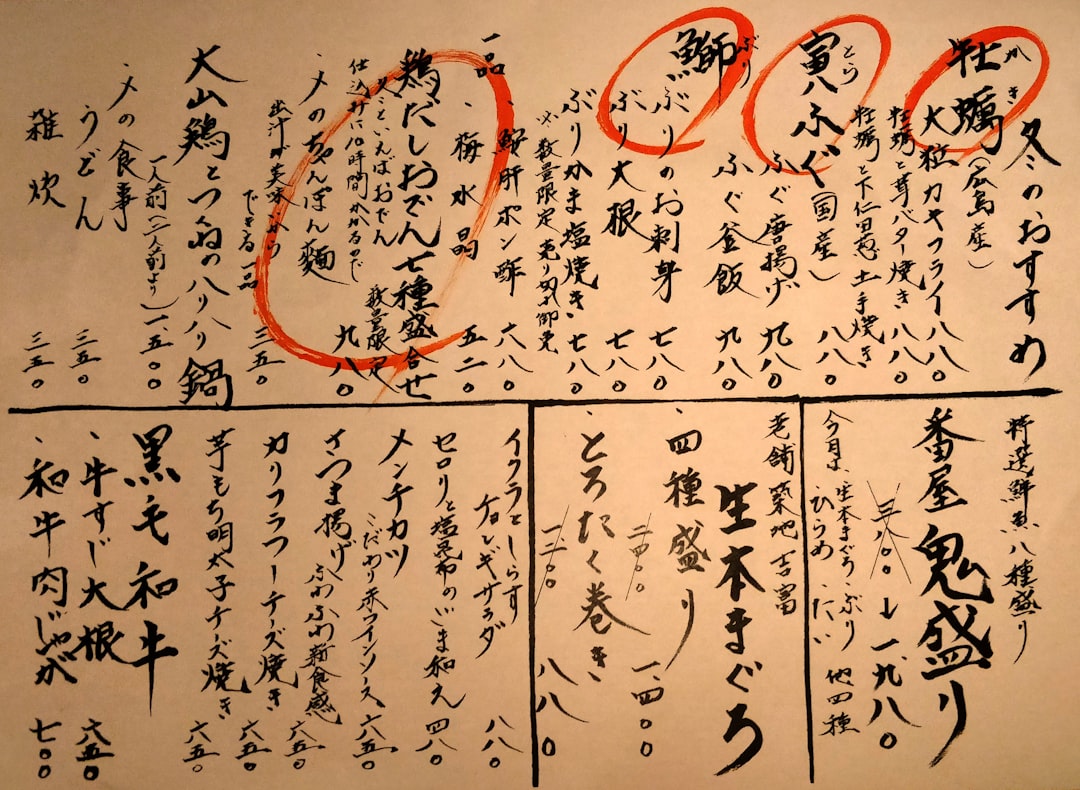 冬のおすすめ
牡蠣(広島産)
かき
大粒カキフライ 八八〇
牡蠣と茸バター焼き 八八〇
牡蠣と下仁田葱土手焼き 八八〇
寅八ふぐ(国産)
とら
ふぐ唐揚げ 九八〇
ふぐ釜飯 九八〇
鰤
ぶり
ぶりのお刺身 七八〇
ぶり大根 七八〇
ぶりかま塩焼き 七八〇
※数量限定 売り切れ御免
一品
鮟肝ポン酢 六八〇
梅水晶 五二〇
鶏だしおでん七種盛合せ
〆といえばおでん
仕込みに10時間かかるので 数量限定 九八〇
〆のちゃんぽん麺
出汁が美味いから
できる一品 三五〇
大山鶏とつくねのハリハリ鍋
一人前(二人前より)一、五〇〇
〆の食事
うどん 三五〇
雑炊 三五〇
特選鮮魚八種盛り
番屋鬼盛り
三、八〇〇→一、九八〇
今月は、生本まぐろ、ぶり
ひらめ、たい 他四種
老舗築地吉富
生本まぐろ
四種盛り
二、四〇〇 一、四〇〇
とろたく巻き
一、二〇〇 八八〇
イクラとしらす
チョレギサラダ 八八〇
セロリと塩昆布のごま和え 四八〇
メンチカツ
こだわり赤ワインソース 六五〇
さつま揚げ ふわふわ新食感 六五〇
カリフラワーチーズ焼き 六五〇
芋もち明太子チーズ焼き 六五〇
黒毛和牛
牛すじ大根 六五〇
和牛肉じゃが 七〇〇